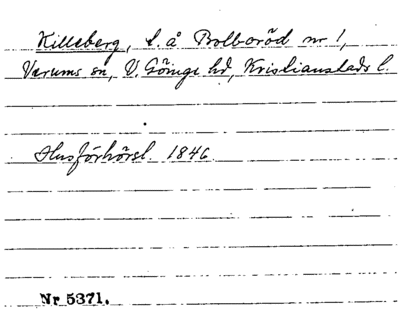 Killeberg, t. å Bolboröd nr 1,
Verums sn, V. Göinge hd, Kristianstads l.
Husförhörsl. 1846
Nr 5371.